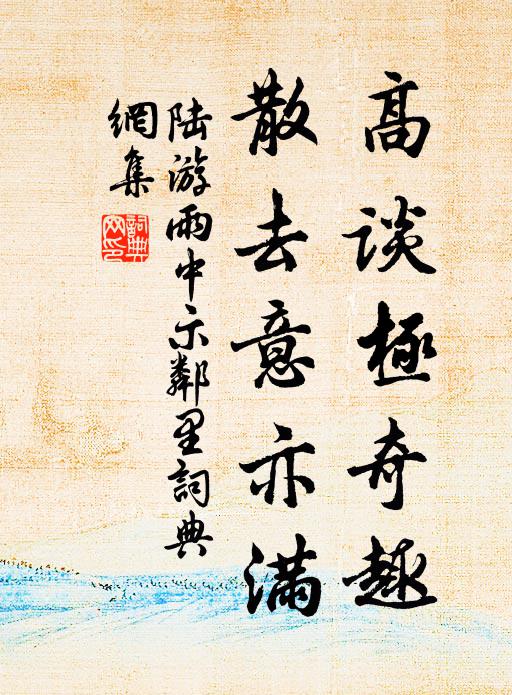 高谈極奇趣
散去意亦满
陆游雨中示鄰里詞典
網集
詞典
网印